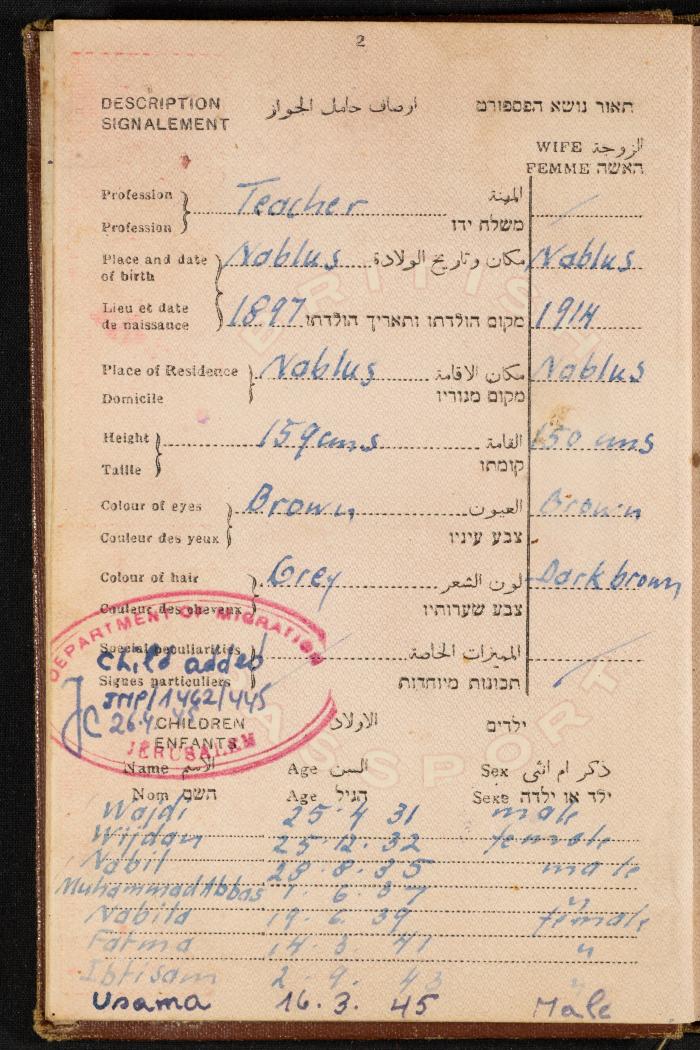 2
DESCRIPTION اوصاف حامل الجواز תאור נושא הפספורט
SIGNALEMENT
WIFE الزوجة
FEMME האשה
Profession Teacher المهنة
Profession משלח ידו
Place and date of birth Nablus مكان وتاريخ الولادة Nablus
Lieu et date de naissance 1897 מקום הולדתו ותאריך הולדתו 1914
Place of Residence Nablus مكان الاقامة Nablus
Domicile מקום מגוריו
Height 159 cms القامة 150 cms
Taille קומתו
Colour of eyes Brown العيون Brown
Couleur des yeux צבע עיניו
Colour of hair Grey لون الشعر Dark brown
Couleur des cheveux צבע שערותיו
DEPARTMENT OF MIGRATION
Special peculiarities المميزات الخاصة
Child added
Signes particuliers תכונות מיוחדות
JMP/1462/445
JC 26.4.45
CHILDREN الاولاد ילדים
ENFANTS
JERUSALEM
BRITISH
PASSPORT
Name الاسم Age السن Sex ذكر ام انثى
Nom השם Age הגיל Sexe ילד או ילדה
Wajdi 25. 4 31 male
Wijdan 25. 12. 32 female
Nabil 28. 8. 35 male
Muhammad Abbas 1. 6. 37 "
Nabila 19. 6. 39 female
Fatma 14. 3. 41 "
Ibtisam 2. 9. 43 "
Usama 16. 3. 45 Male